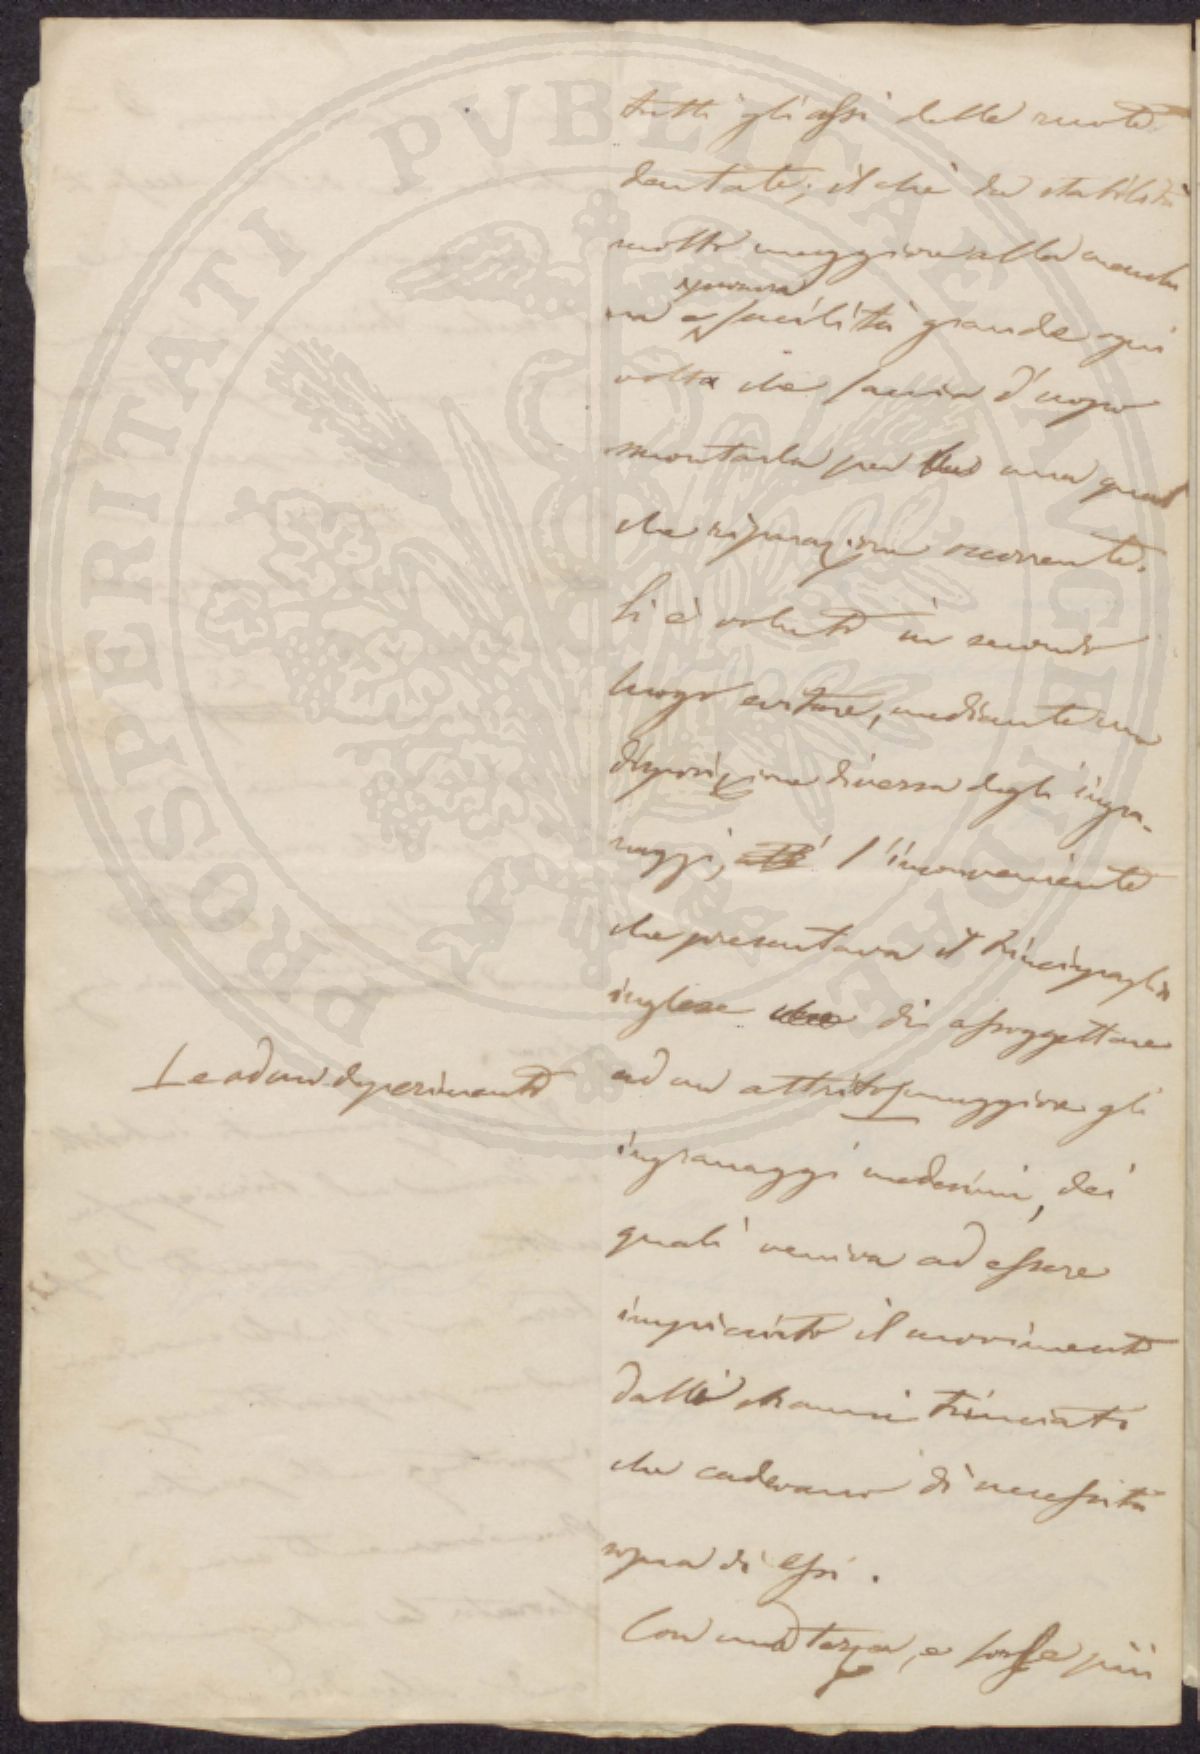 tutti gli assi delle ruote
dentate; il che dà stabilità
molto maggiore alla machi
procura
na e facilità grande ogni
volta che faccia d'uopo
smontarla per una qual
che riparazione occorrente.
Si è voluto in secondo
luogo evitare, mediante una
disposizione diversa degli ingra-
naggi, l'inconveniente
che presentava il trinciapaglia
inglese di assoggettare
ad un attrito maggiore gli
ingranaggi medesimi, dei
quali veniva ad essere
impicciato il movimento
dalli strami trinciati
che cadevano di necessità
sopra di essi.
Con una terza, e forse più
e ad un deperimento
PROSPERITATI PVBLICAE AVGENDAE